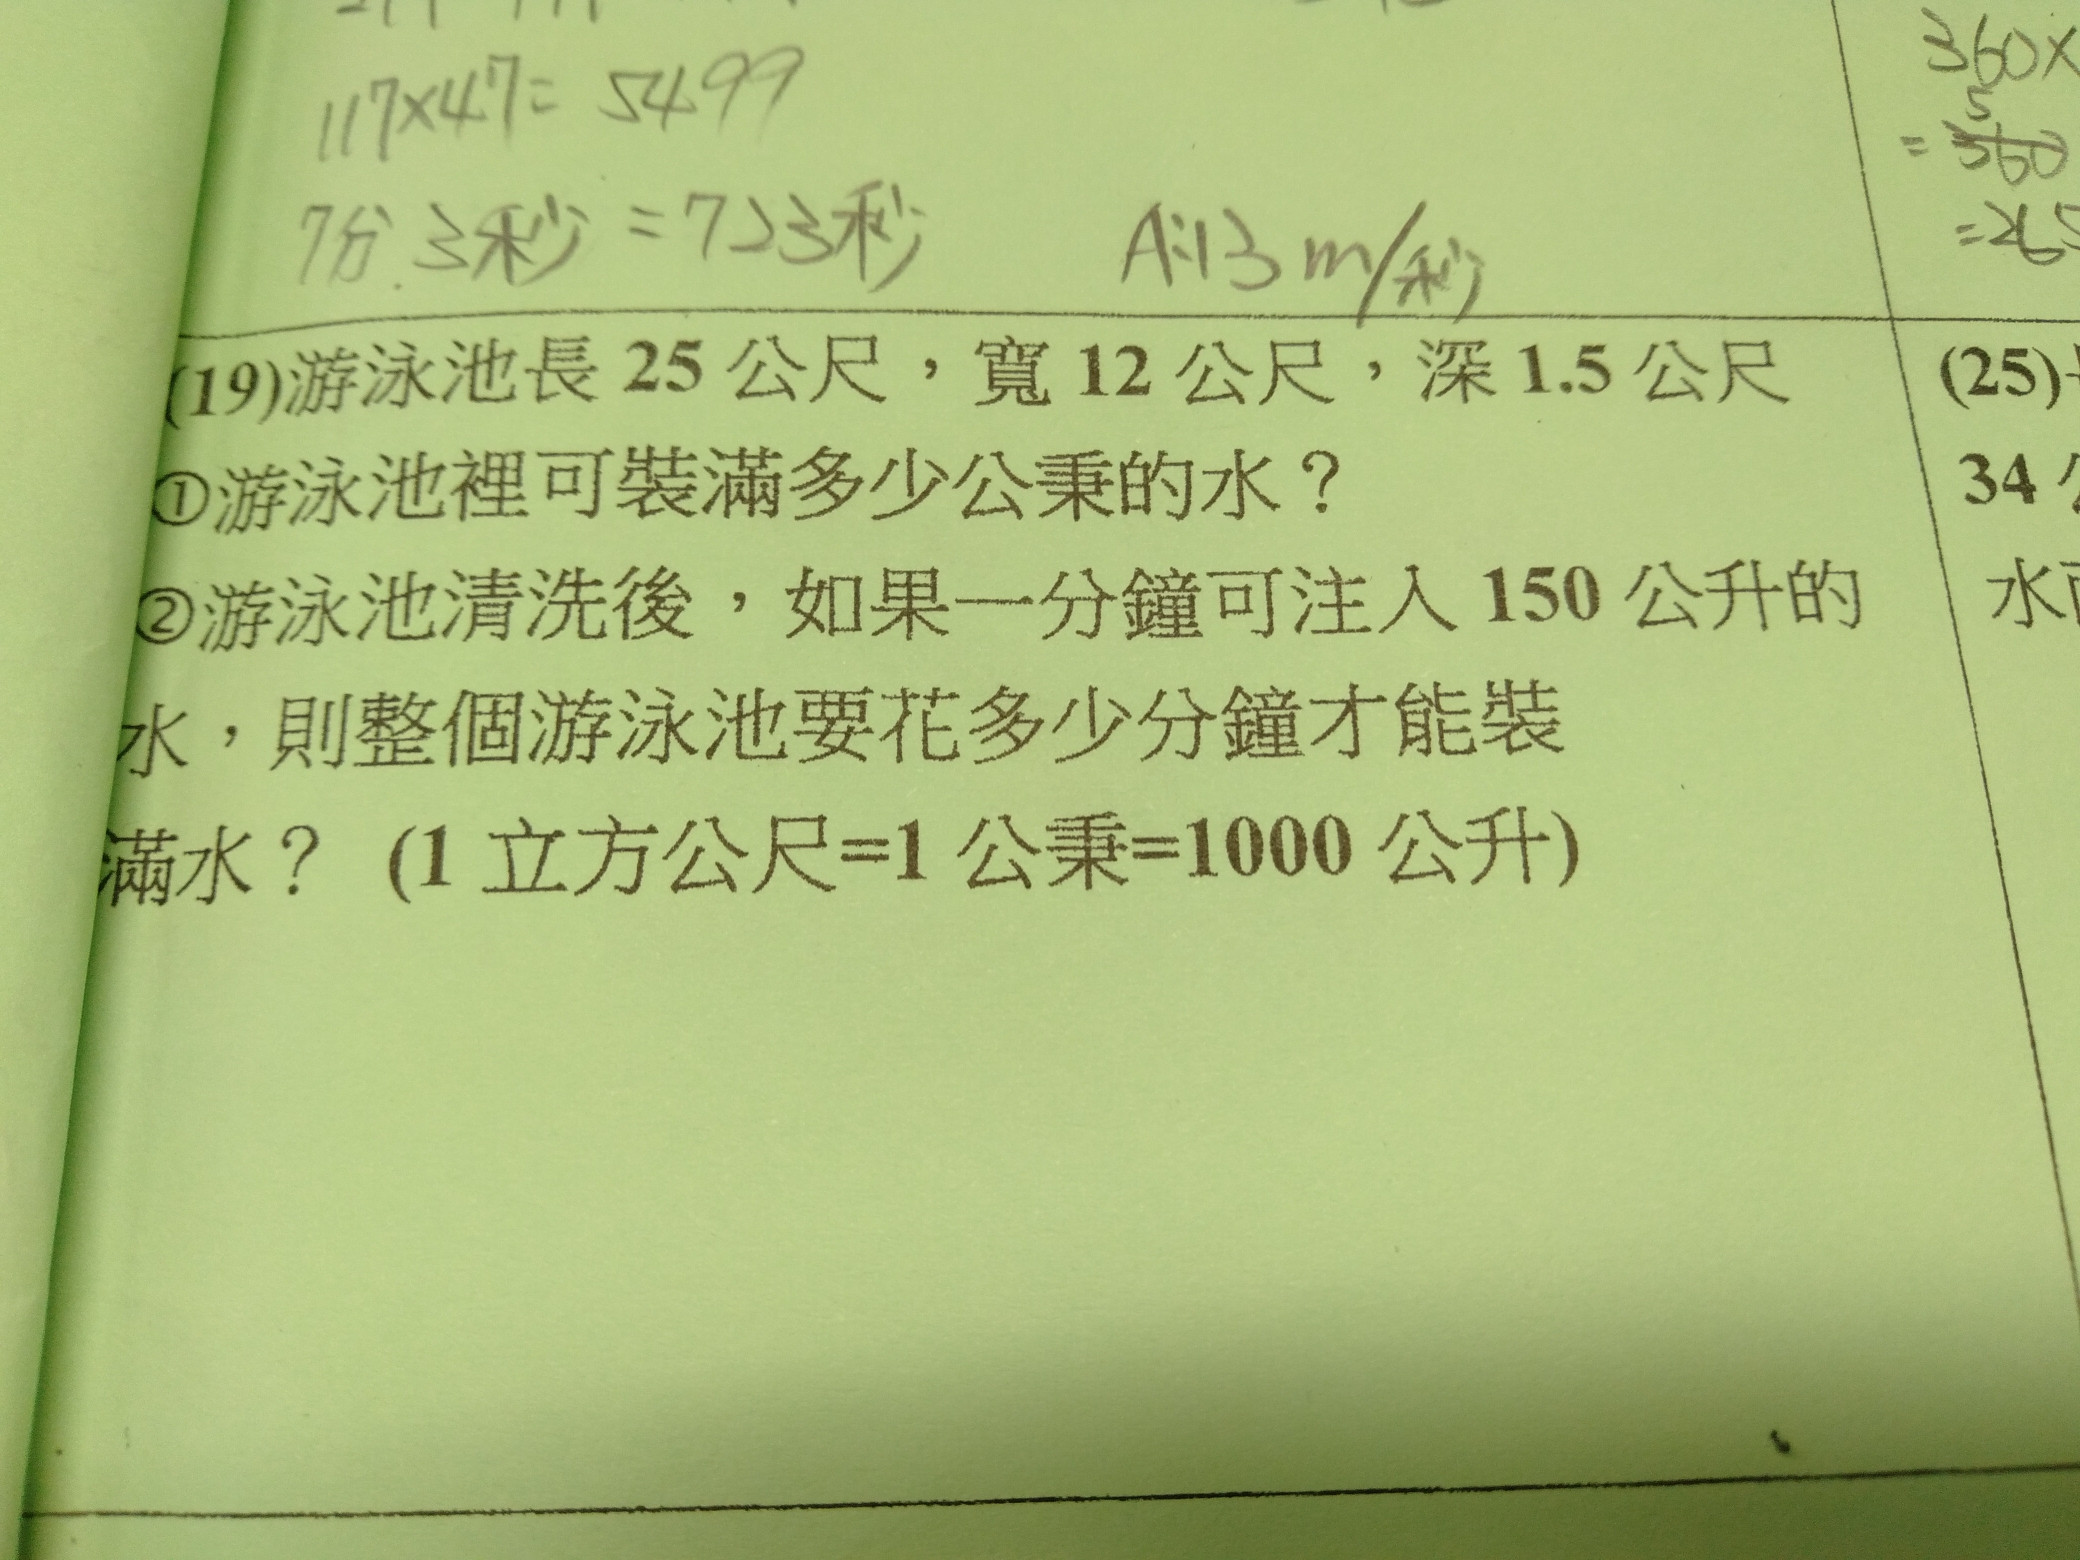 117×47= 5499
360×
5
= 360
7分.3秒 =723秒
A:13 m/秒
=265
(19)游泳池長 25 公尺，寬 12 公尺，深 1.5 公尺
(25)
①游泳池裡可裝滿多少公秉的水？
34 公
②游泳池清洗後，如果一分鐘可注入 150 公升的
水
水，則整個游泳池要花多少分鐘才能裝
滿水？ (1 立方公尺=1 公秉=1000 公升)